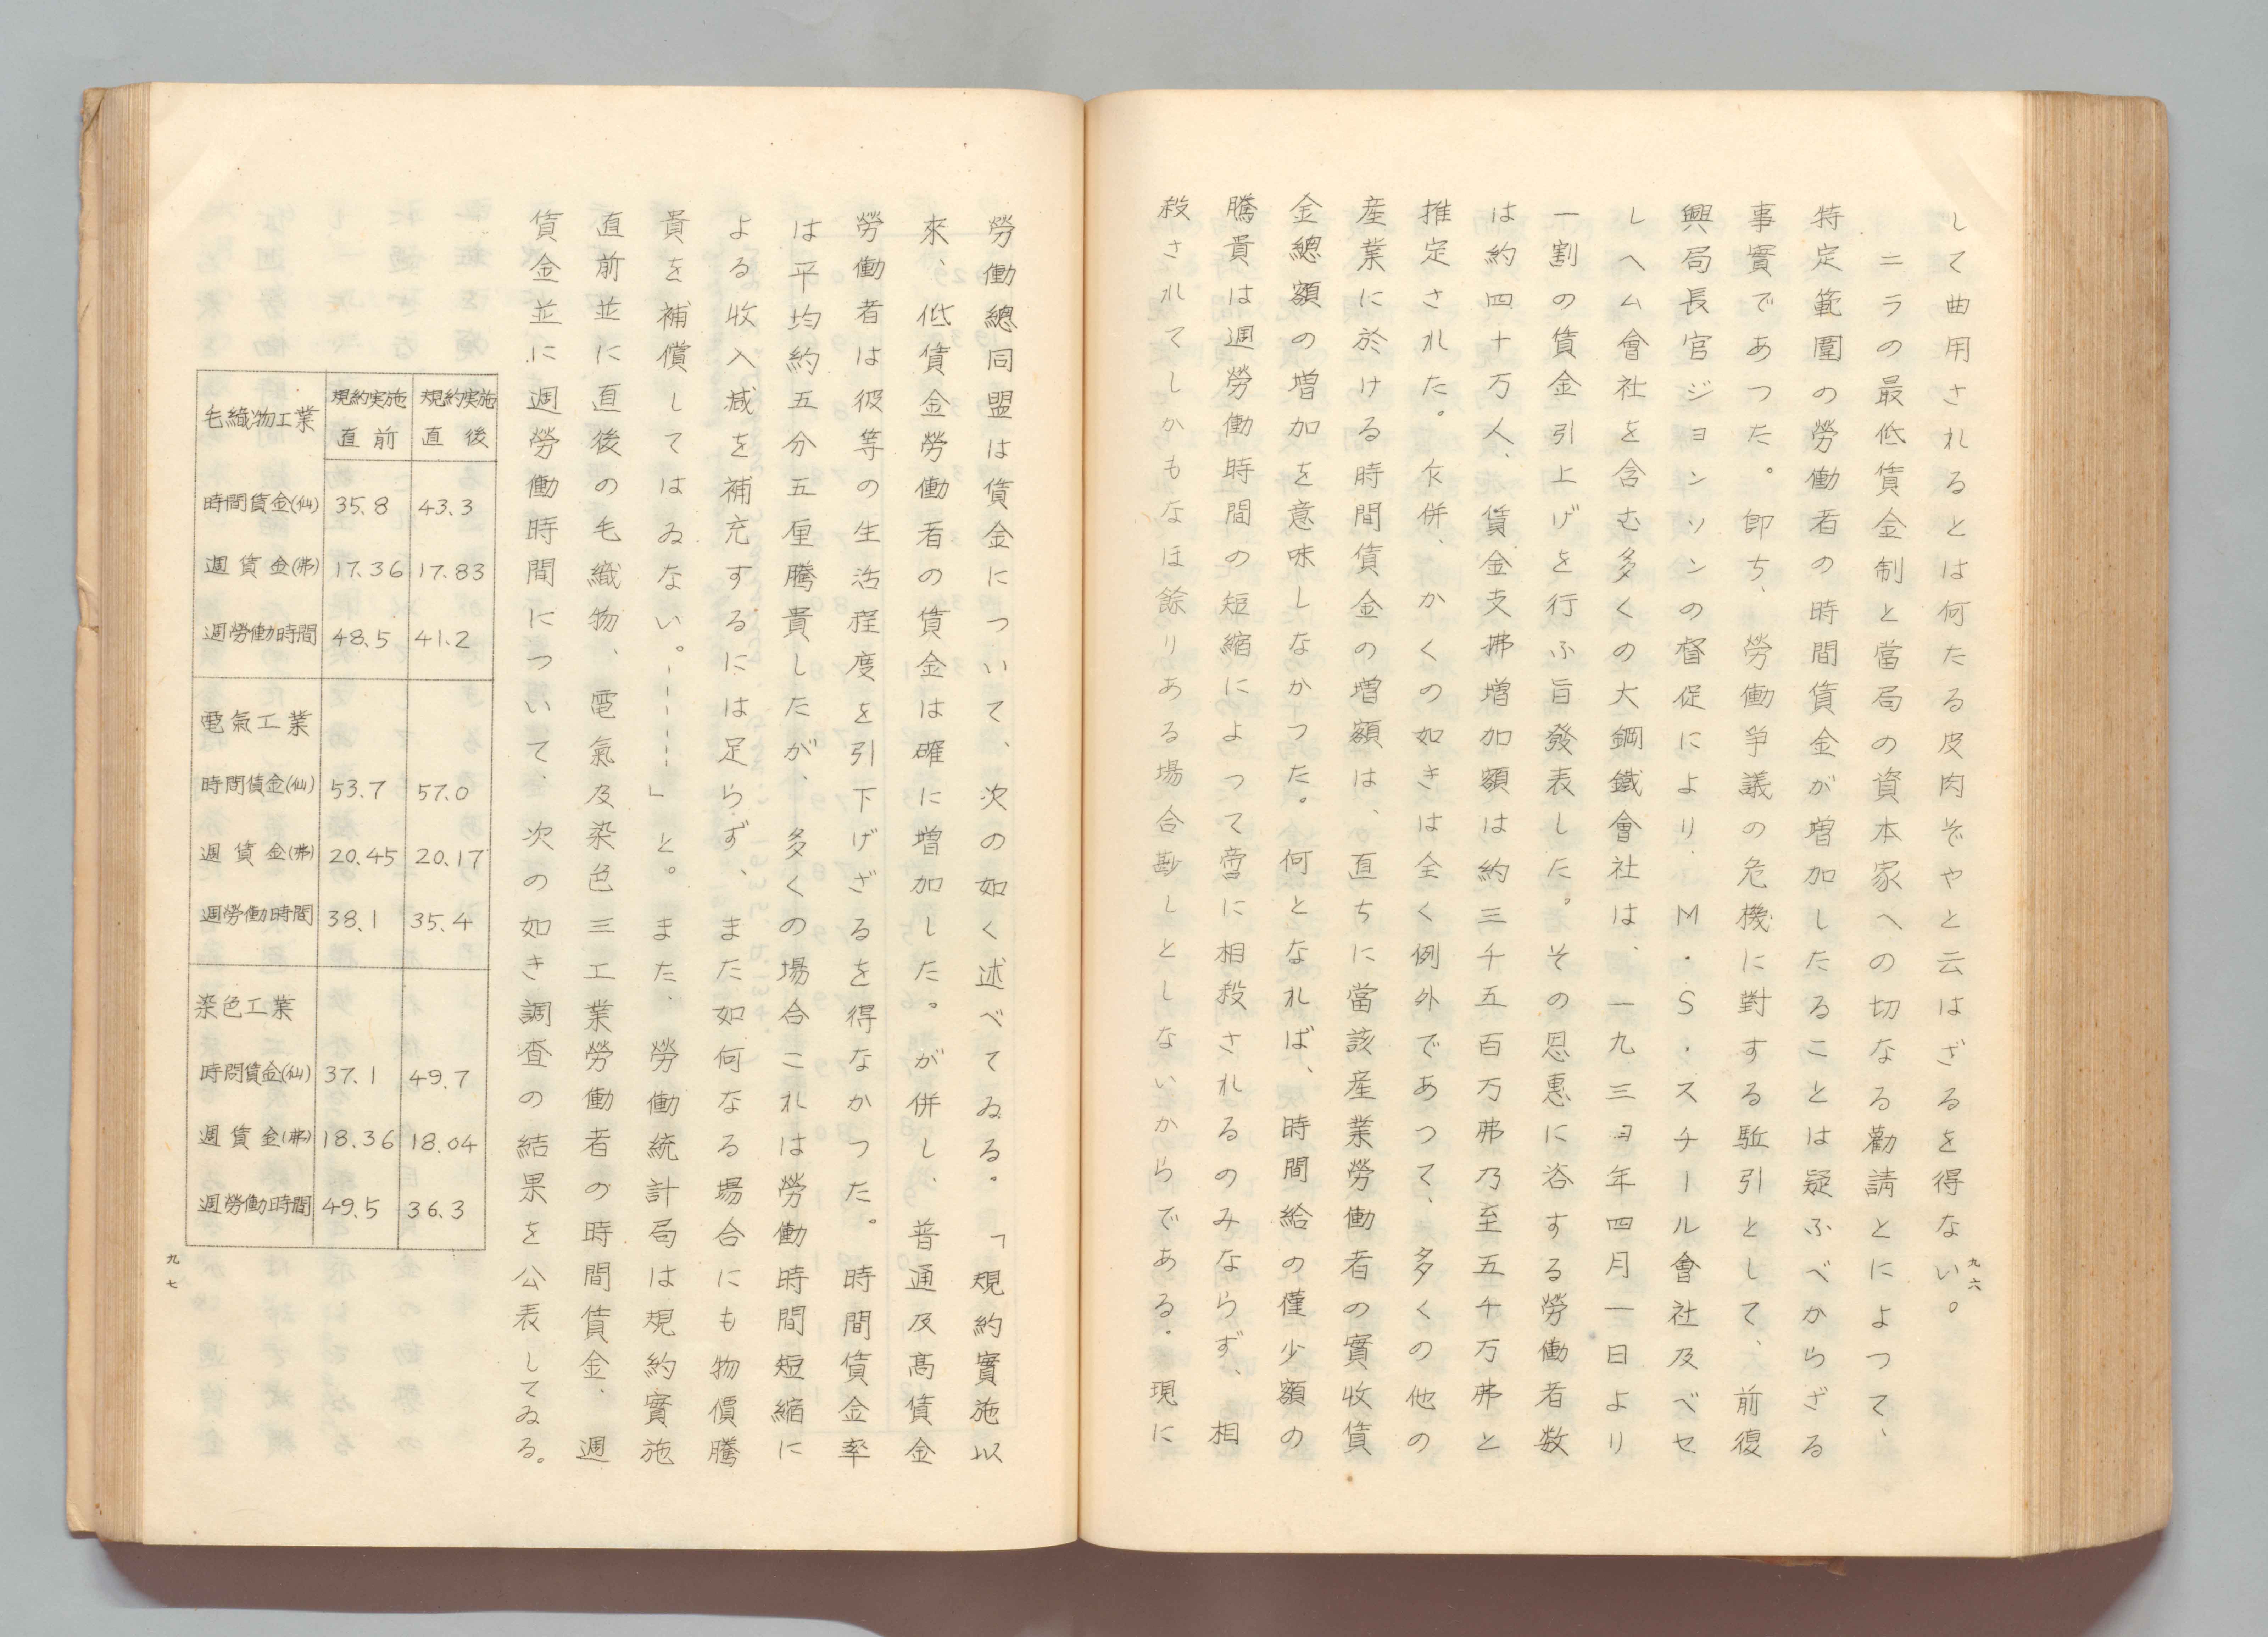 して曲用されるとは何たる皮肉ぞやと云はざるを得ない。
ニラの最低賃金制と當局の資本家への切なる勸請とによつて、
特定範圍の勞働者の時間賃金が増加したることは疑ふべからざる
事實であつた。卽ち、勞働爭議の危機に對する駈引として、前復
興局長官ジョンソンの督促により、M・S・スチール會社及ベセ
レヘム會社を含む多くの大鋼鐵會社は、一九三四年四月一日より
一割の賃金引上げを行ふ旨發表した。その恩惠に浴する勞働者数
は約四十万人、賃金支拂増加額は約三千五百万弗乃至五千万弗と
推定された。乍併、かくの如きは全く例外であつて、多くの他の
産業に於ける時間賃金の増額は、直ちに當該産業勞働者の實收賃
金總額の増加を意味しなかつた。何となれば、時間給の僅少額の
騰貴は週勞働時間の短縮によつて啻に相殺されるのみならず、相
殺されてしかもなほ餘りある場合尠しとしないからである。現に
九六
勞働總同盟は賃金について、次の如く述べてゐる。「規約實施以
來、低賃金勞働者の賃金は確に増加した。が併し、普通及高賃金
勞働者は彼等の生活程度を引下げざるを得なかつた。時間賃金率
は平均約五分五厘騰貴したが、多くの場合これは勞働時間短縮に
よる收入減を補充するには足らず、また如何なる場合にも物價騰
貴を補償してはゐない。……」と。また、勞働統計局は規約實施
直前並に直後の毛織物、電氣及染色三工業勞働者の時間賃金、週
賃金並に週勞働時間について、次の如き調査の結果を公表してゐる。
毛織物工業 規約実施直前 規約実施直後
時間賃金(仙) 35.8 43.3
週賃金(弗) 17.36 17.83
週勞働時間 48.5 41.2
電氣工業
時間賃金(仙) 53.7 57.0
週賃金(弗) 20.45 20.17
週勞働時間 38.1 35.4
染色工業
時間賃金(仙) 37.1 49.7
週賃金(弗) 18.36 18.04
週勞働時間 49.5 36.3
九七